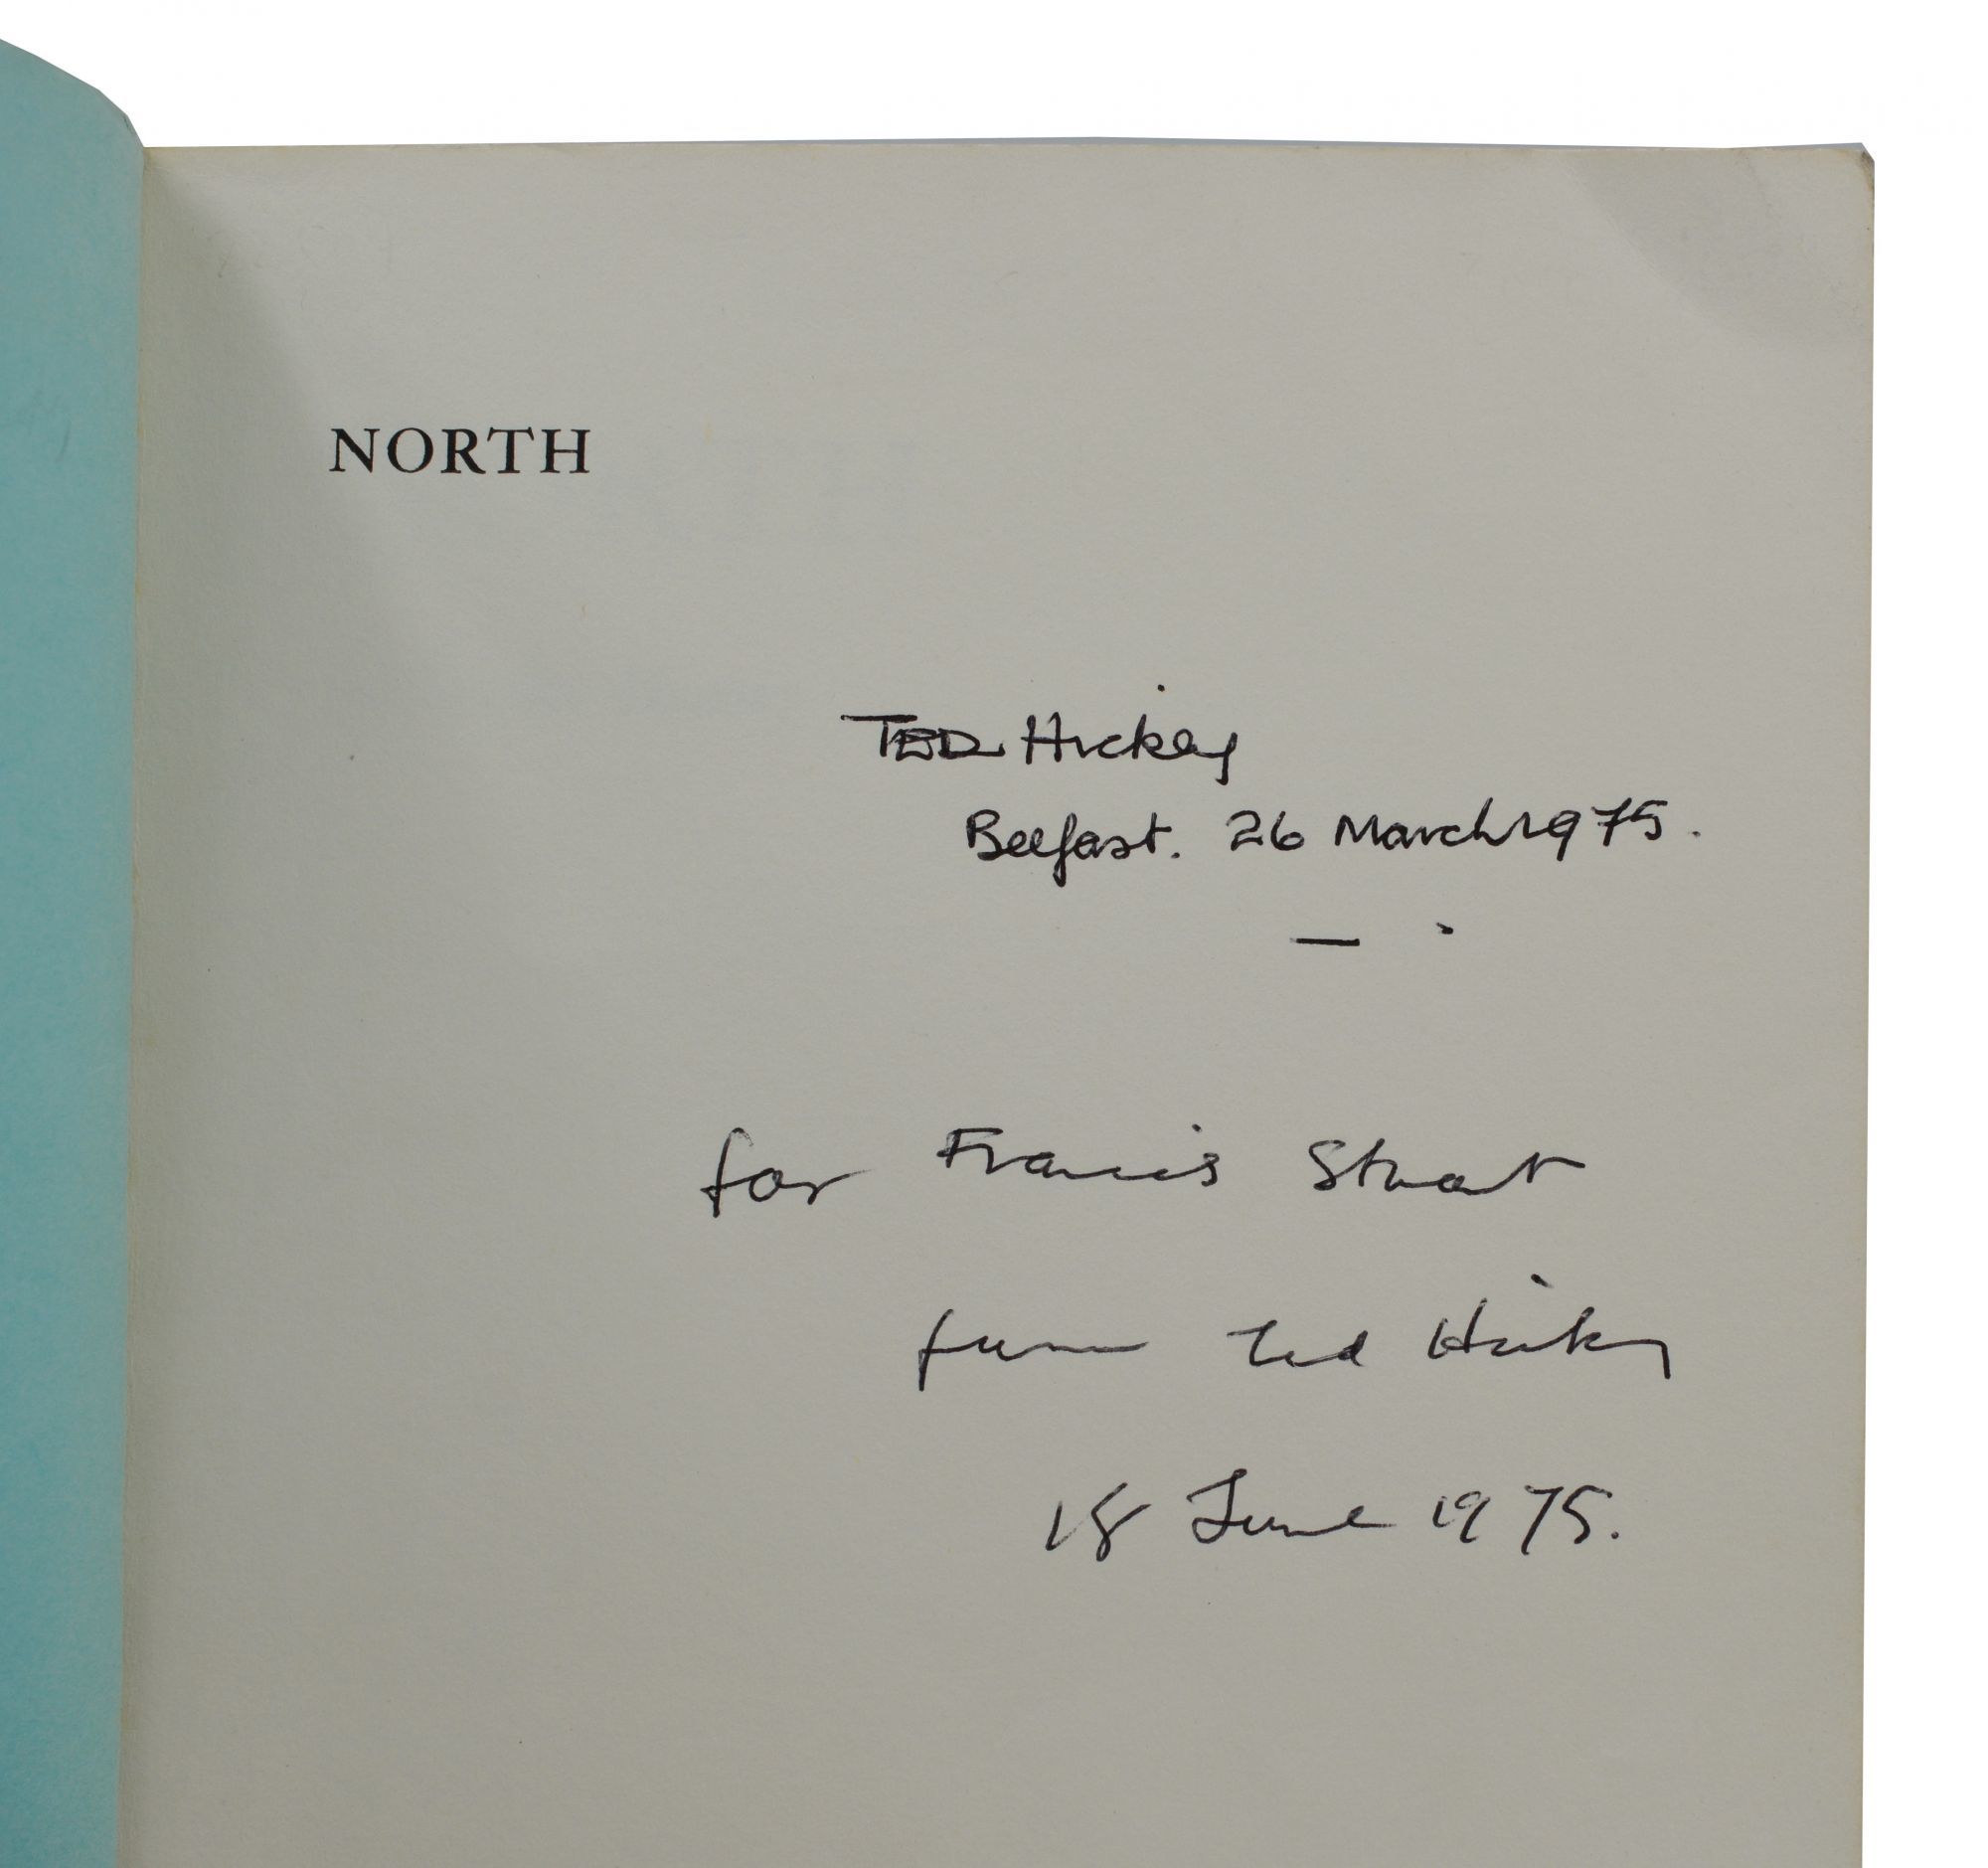 NORTH
TED Hickey
Belfast. 26 March 1975.
for Francis Stuart
from Ted Hickey
18 June 1975.